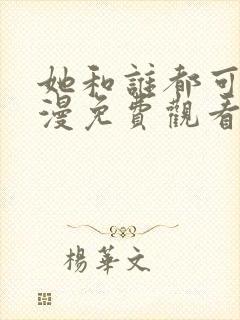 她和誰都可
漫免費觀看
楊華文